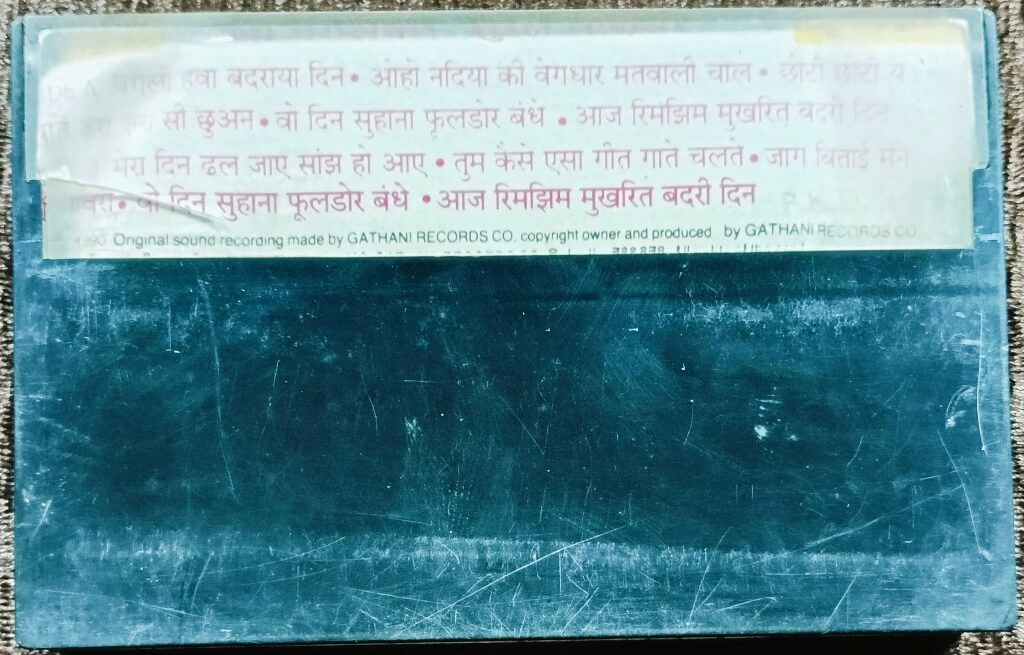 हवा बदराया दिन • ओहो नदिया की वेगधार मतवाली चाल • छोटी छोटी
सी छुअन • वो दिन सुहाना फूलडोर बंधे • आज रिमझिम मुखरित बदरी दिन
मेरा दिन ढल जाए सांझ हो आए • तुम कैसे एसा गीत गाते चलते • जाग बिताई मैंने
वो दिन सुहाना फूलडोर बंधे • आज रिमझिम मुखरित बदरी दिन
1990 Original sound recording made by GATHANI RECORDS CO. copyright owner and produced by GATHANI RECORDS CO